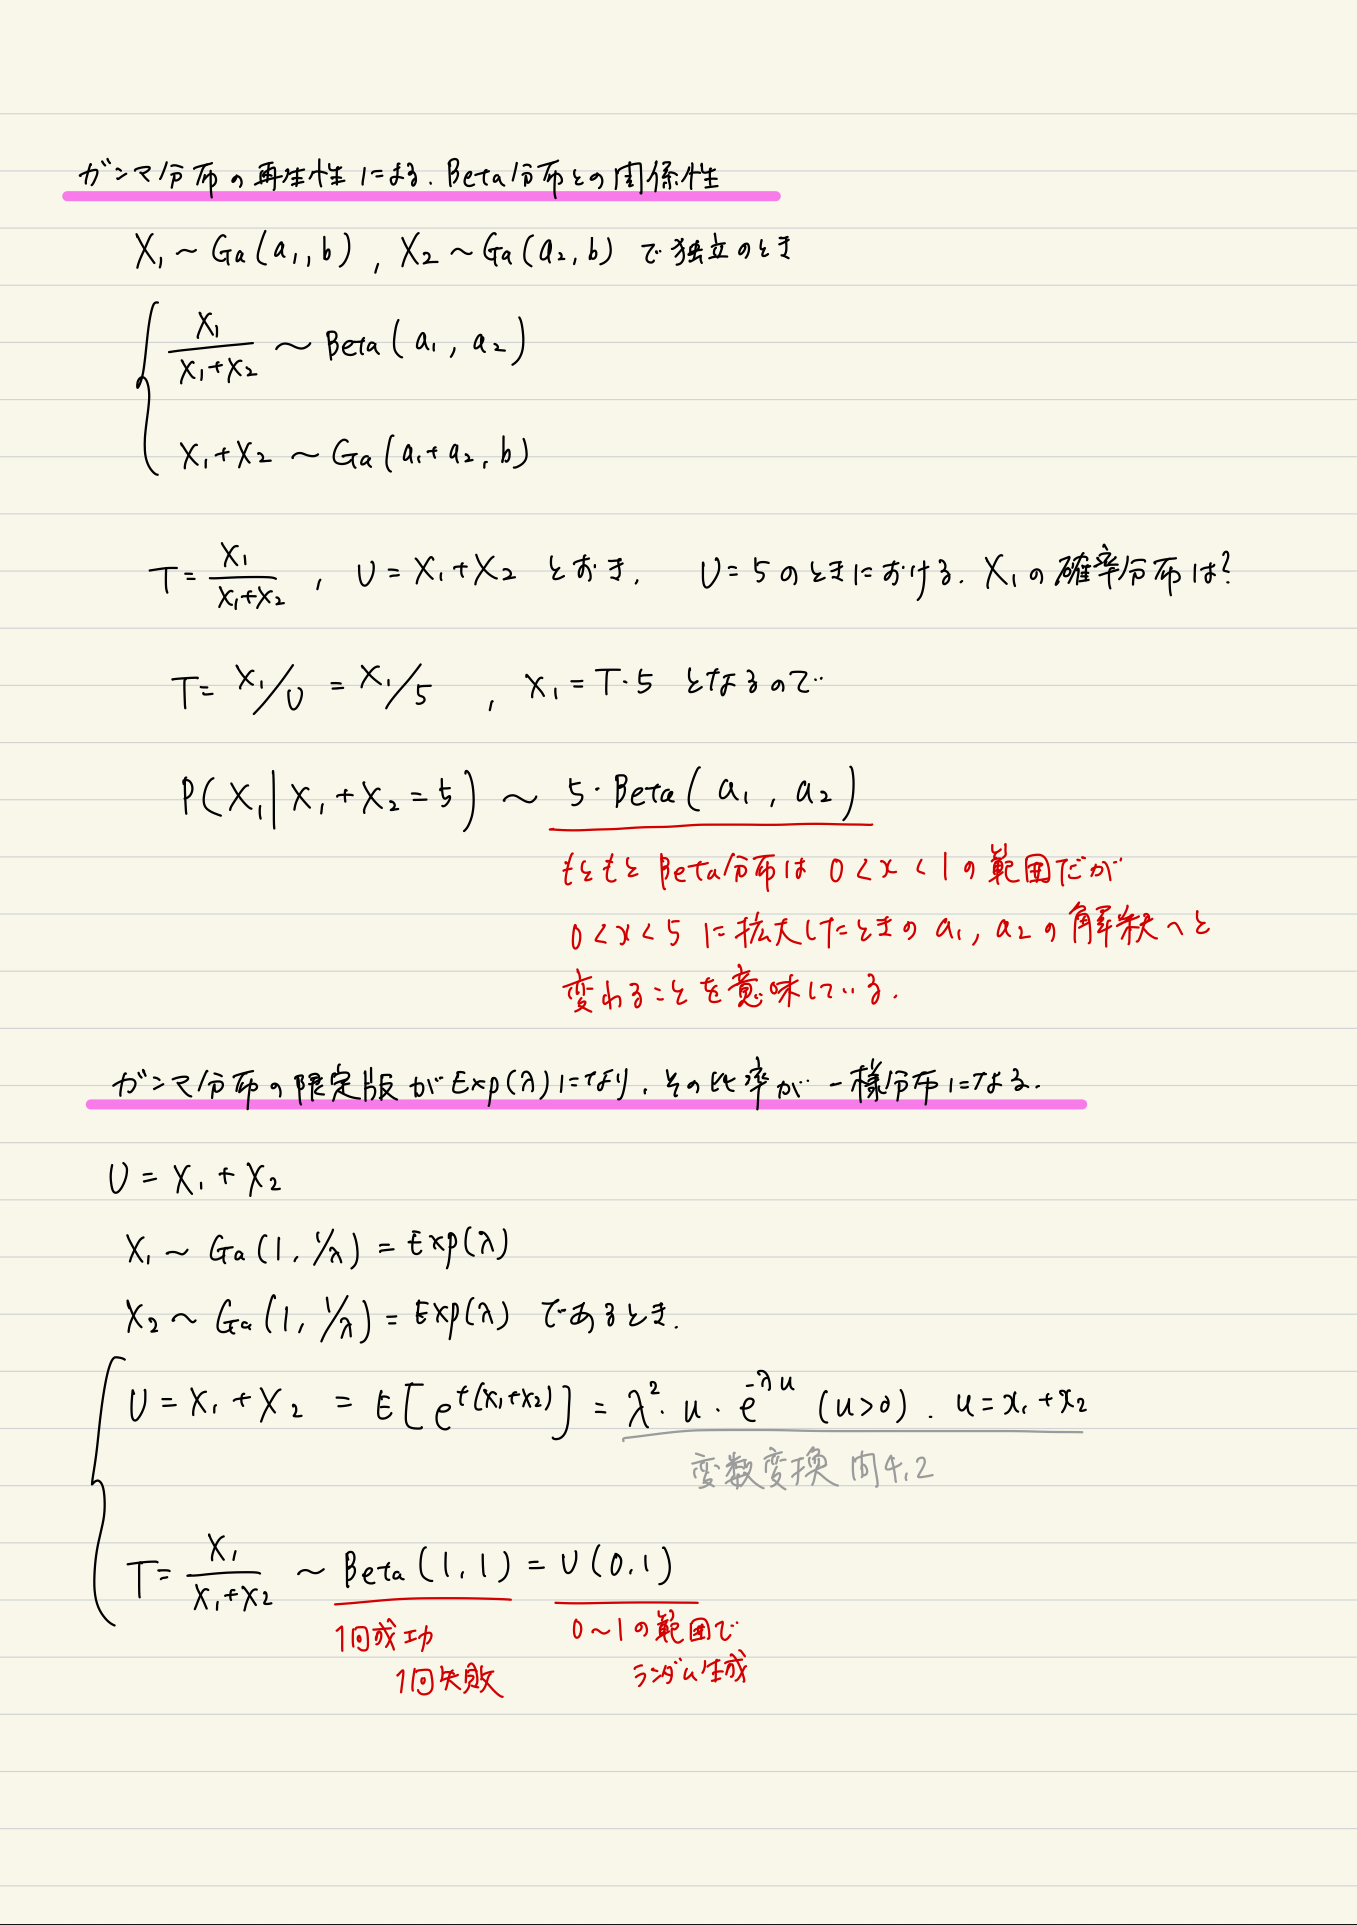 ガンマ分布の再生性による、Beta分布との関係性
X₁ ~ Ga(a₁, b), X₂ ~ Ga(a₂, b) で独立のとき
X₁/(X₁+X₂) ~ Beta(a₁, a₂)
X₁+X₂ ~ Ga(a₁+a₂, b)
T = X₁/(X₁+X₂), U = X₁+X₂ とおき、 U=5のときにおける、X₁の確率分布は?
T = X₁/U = X₁/5 , X₁ = T・5 となるので
P(X₁|X₁+X₂=5) ~ 5・Beta(a₁, a₂)
もともとBeta分布は 0<x<1の範囲だが
0<x<5 に拡大したときの a₁, a₂の解釈へと
変わることを意味している.
ガンマ分布の限定版がExp(λ)になり、その比率が一様分布になる.
U = X₁ + X₂
X₁ ~ Ga(1, 1/λ) = Exp(λ)
X₂ ~ Ga(1, 1/λ) = Exp(λ) であるとき.
U = X₁+X₂ = E[e^{t(X₁+X₂)}] = λ²・u・e^{-λu} (u>0). u=x₁+x₂
変数変換 問4.2
T = X₁/(X₁+X₂) ~ Beta(1,1) = U(0,1)
1回成功
1回失敗
0~1の範囲で
ランダム生成